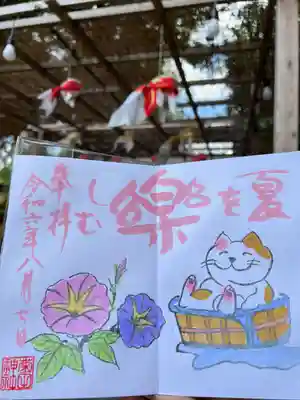 夏を樂しむ
奉拝
令和六年八月七日